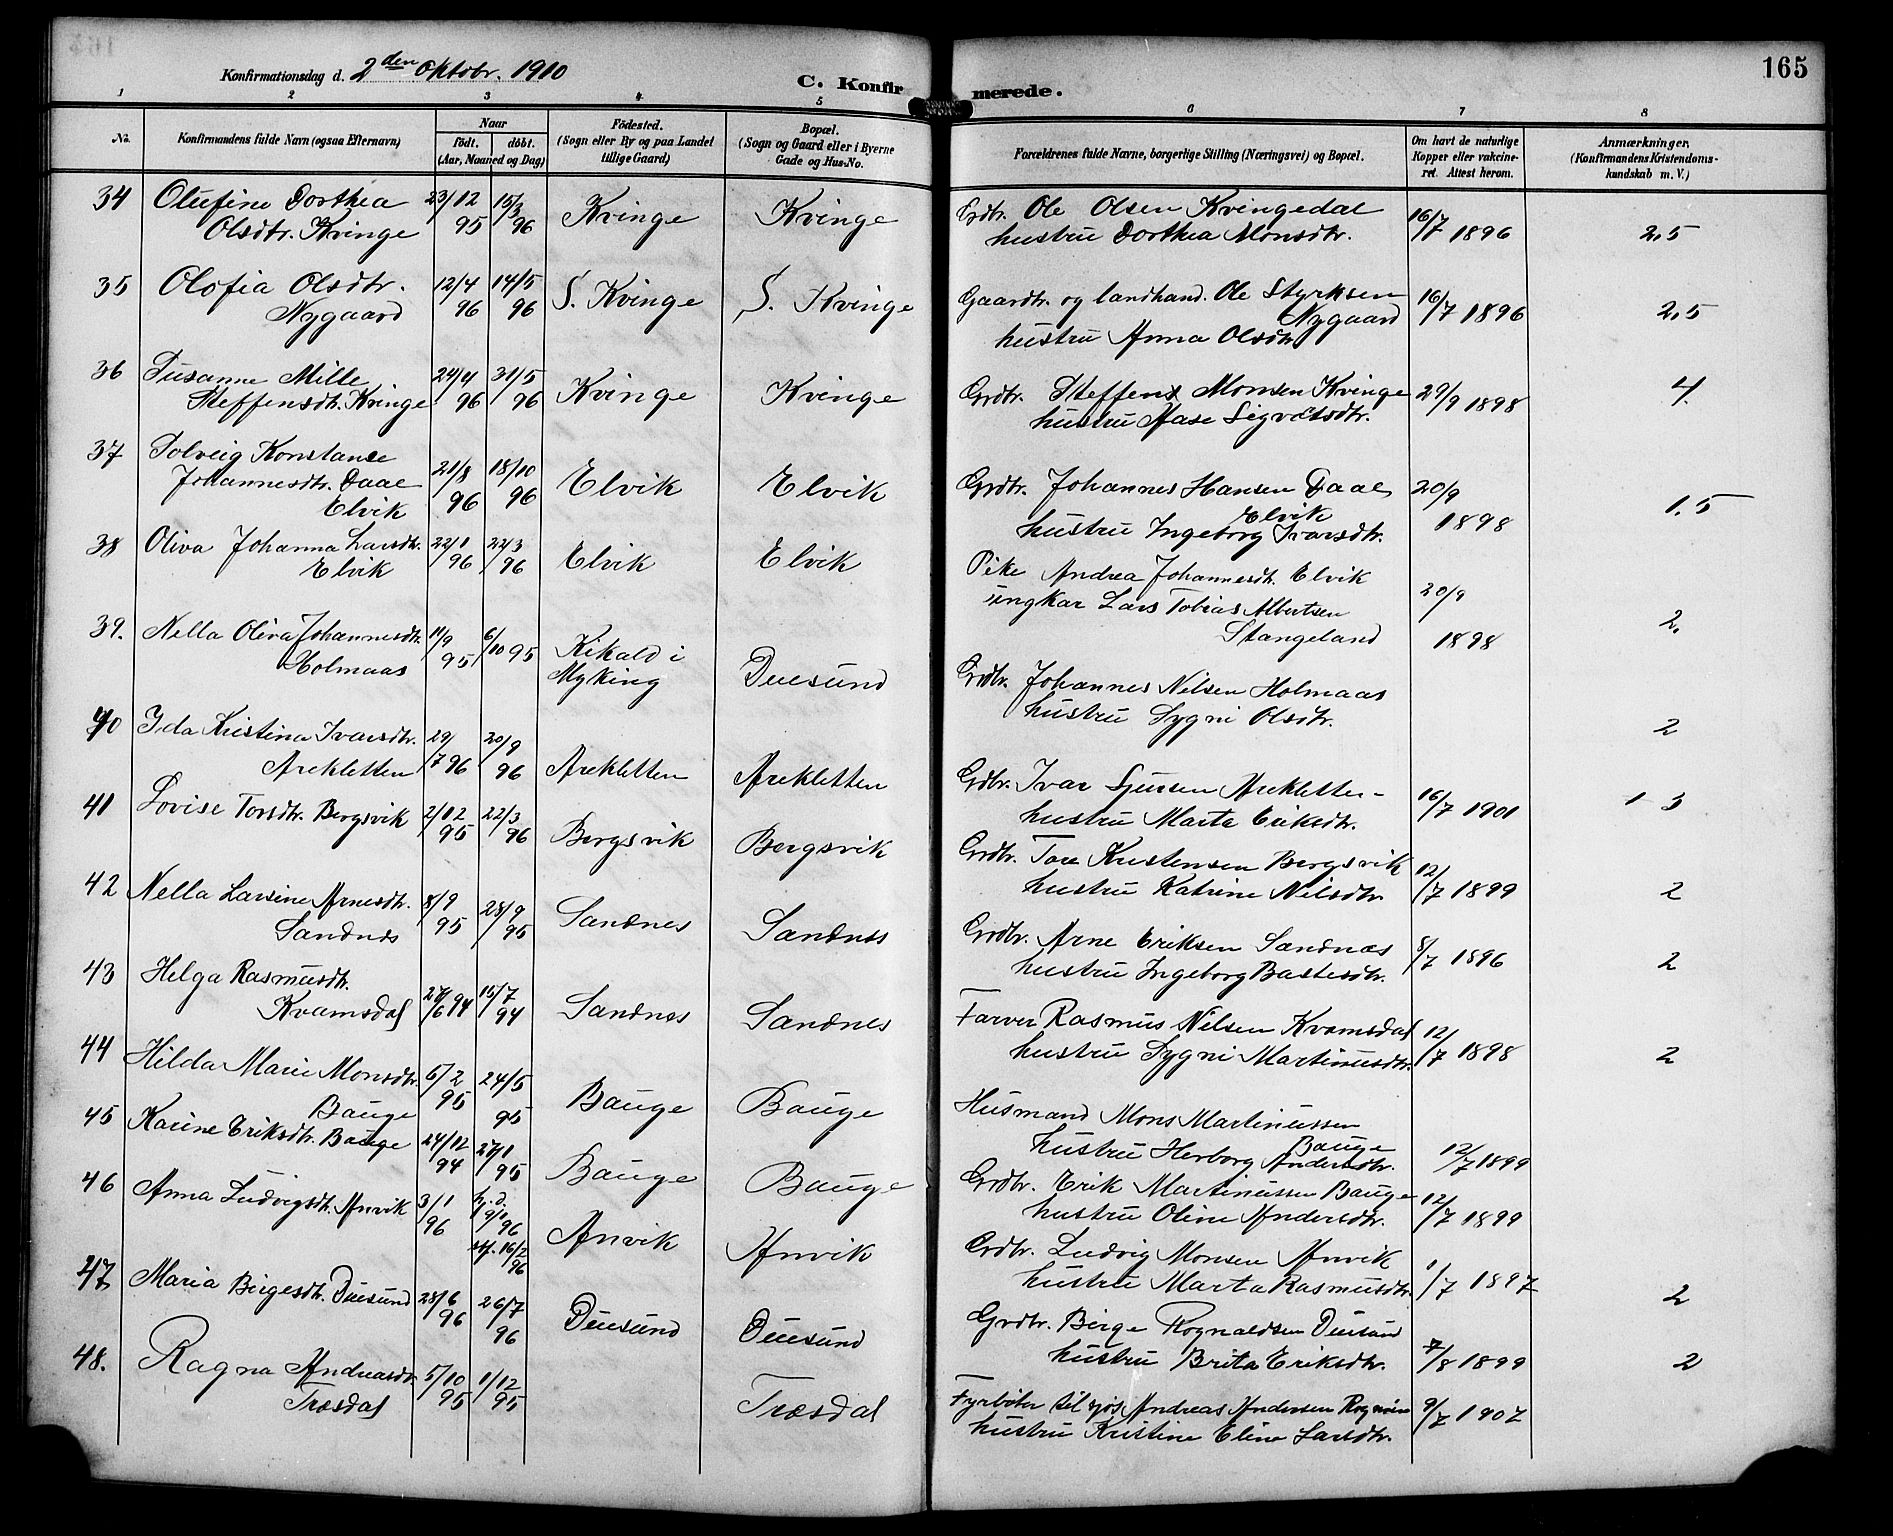 Konfirmationsdag d. 2den Oktobr. 1910
C. Konfirmerede.
165
1 2 3 4 5 6 7 8
No.
Konfirmandens fulde Navn (ogsaa Efternavn)
Naar
födt. döbt.
(Aar, Maaned og Dag)
Födested.
(Sogn eller By og paa Landet
tillige Gaard)
Bopæl.
(Sogn og Gaard eller i Byerne
Gade og Hus-No.
Forældrenes fulde Navne, borgerlige Stilling (Næringsvei) og Bopæl.
Om havt de naturlige
Kopper eller vakcine-
ret. Attest herom.
Anmærkninger,
(Konfirmandens Kristendoms-
kundskab m. V.)
34 Olufine Dorthea 23/12 15/3 Kvinge Kvinge Grdbr. Ole Olsen Kvingedal 16/7 1896 2,5
Olsdtr. Kvinge 95 96 hustru Dorthea Monsdtr.
35 Olofia Olsdtr. 12/4 14/5 S. Kvinge S. Kvinge Gaardbr. og landhand. Ole Styrksen 16/7 1896 2,5
Nygaard 96 96 Nygaard
hustru Anna Olsdtr.
36 Susanne Mille 24/4 31/5 Kvinge Kvinge Grdbr. Steffen Monsen Kvinge 29/9 1898 4.
Steffensdtr. Kvinge 96 96 hustru Aase Sigvetsdtr.
37 Solveig Konstanse 21/8 18/10 Elvik Elvik Grdbr. Johannes Hansen Daae 20/9 1.5
Johannesdtr. Daae 96 96 Elvik 1898
Elvik hustru Ingeborg Ivarsdtr.
38 Oliva Johanna Larsdtr. 22/1 22/3 Elvik Elvik Pike Andrea Johannesdtr. Elvik 20/9 2.
Elvik 96 96 ungkar Lars Tobias Albertsen
Stangeland 1898
39. Nella Oliva Johannesdtr. 11/9 6/10 95 Kikald i Duesund Grdbr. Johannes Nilsen Holmaas 2
Holmaas 95 Myking hustru Sygni Olsdtr.
40 Ida Kristina Ivarsdtr. 29/7 96 20/9 Arekletten Arekletten Grdbr. Ivar Sjursen Arekletten 16/7 1901 1 3
Arekletten 96 hustru Marta Eriksdtr.
41 Lovise Torsdtr. Bergsvik 2/12 22/3 Bergsvik Bergsvik Grdbr. Tore Kristensen Bergsvik 12/7 1899 2
95 96 hustru Katrine Nilsdtr.
42 Nella Larsine Arnesdtr. 8/9 28/9 Sandnes Sandnes Grdbr. Arne Eriksen Sandnæs 8/7 1896 2
Sandnes 95 95 hustru Ingeborg Bastesdtr.
43 Helga Rasmusdtr. 94 15/7 Sandnes Sandnes Farver Rasmus Nilsen Kvamsdal 12/7 1898 2
Kvamsdal 94 hustru Sygni Martinusdtr.
44 Hilda Marie Monsdtr. 5/2 24/5 Bauge Bauge Husmand Mons Martinussen
Bauge 95 95 Bauge
hustru Herborg Andersdtr. 12/7 1899
45 Karine Eriksdtr. Bauge 24/12 27/1 Bauge Bauge Grdbr. Erik Martinussen Bauge 12/7 1899
94 95 hustru Oline Andersdtr.
46 Anna Ludvigsdtr. Anvik 3/1 hj. d. 9/1 Anvik Anvik Grdbr. Ludvig Monsen Anvik 1/7 1897 2
96 96 hustru Marta Rasmusdtr.
stf. 16/2 96
47. Maria Birgesdtr. Duesund 28/6 26/7 Duesund Duesund Grdbr. Birge Rognaldsen Duesund 7/8 1899 2
96 96 hustru Brita Eriksdtr.
48. Ragna Andreasdtr. 5/10 1/12 Træsdal Fyrböter til sjøs Andreas Andersen 9/7 1907
Træsdal 95 95 hustru Kristine Eline Larsdtr.